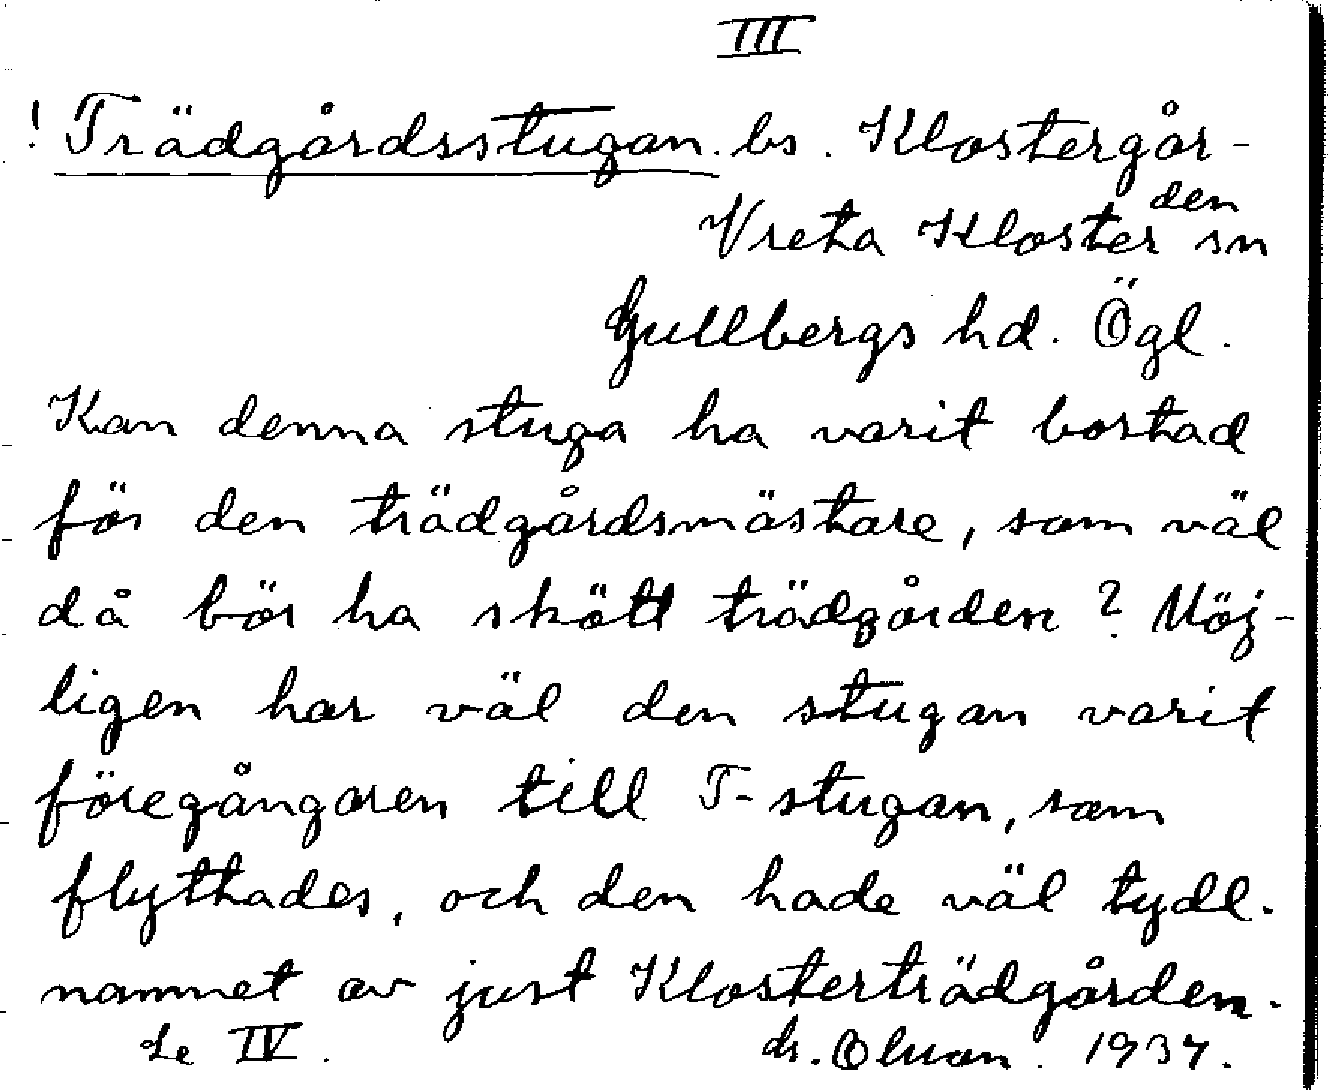 III
! Trädgårdsstugan. bs. Klostergår-
den
Vreta Kloster sn
Gullbergs hd. Ögl.
Kan denna stuga ha varit bostad
för den trädgårdsmästare, som väl
då bör ha skött trädgården? Möj-
ligen har väl den stugan varit
föregångaren till T-stugan, som
flyttades, och den hade väl tydl.
namnet av just Klosterträdgården.
Se IV. 1937.